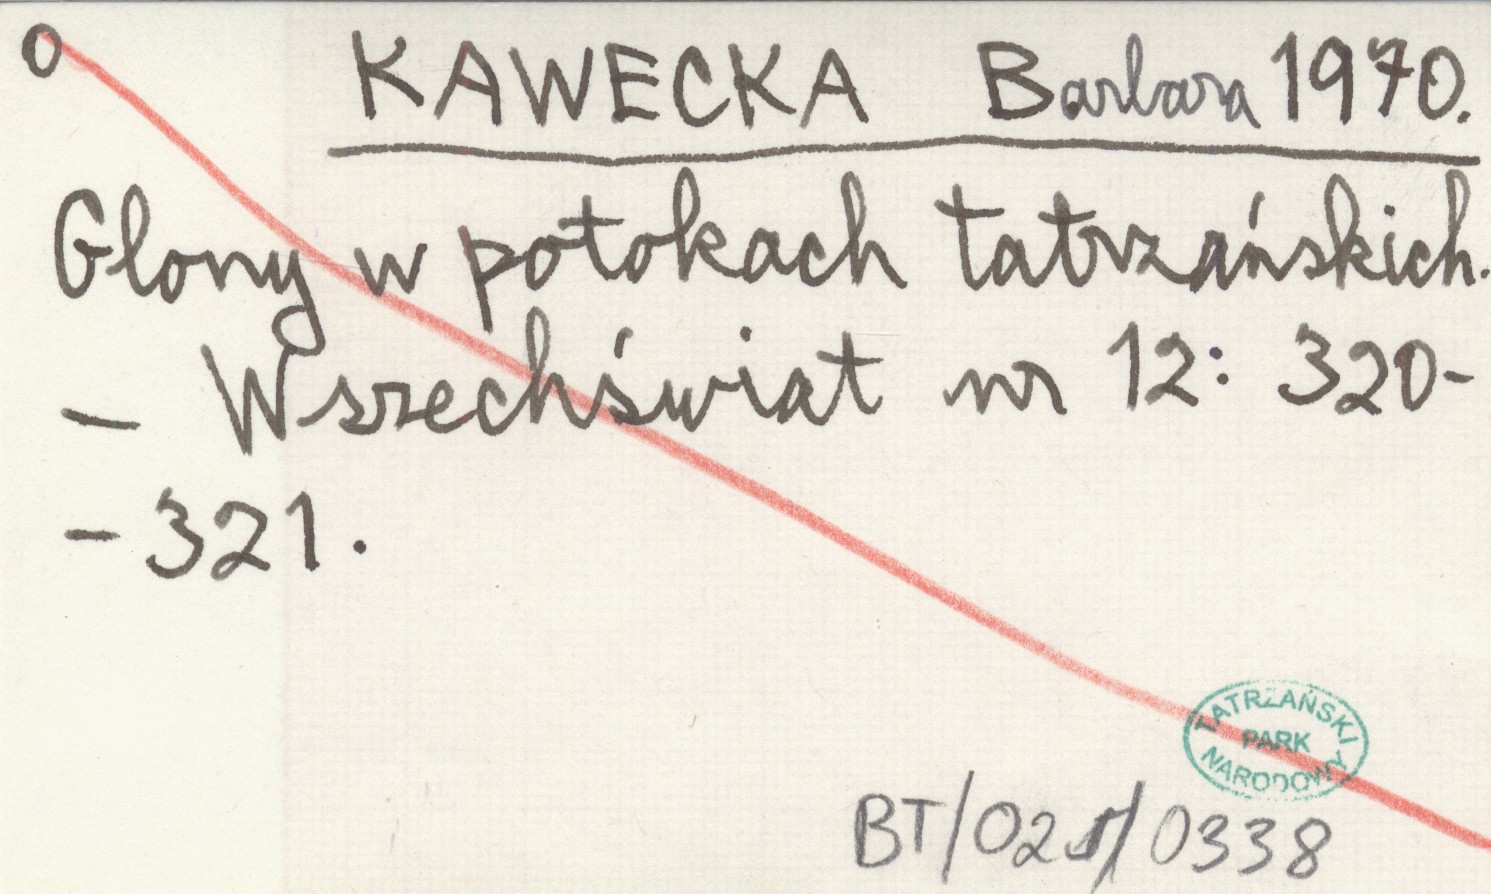 O
KAWECKA Barbara 1970.
Glony w potokach tatrzańskich.
- Wszechświat nr 12: 320-
- 321.
TATRZAŃSKI
PARK
NARODOWY
BT/025/0338